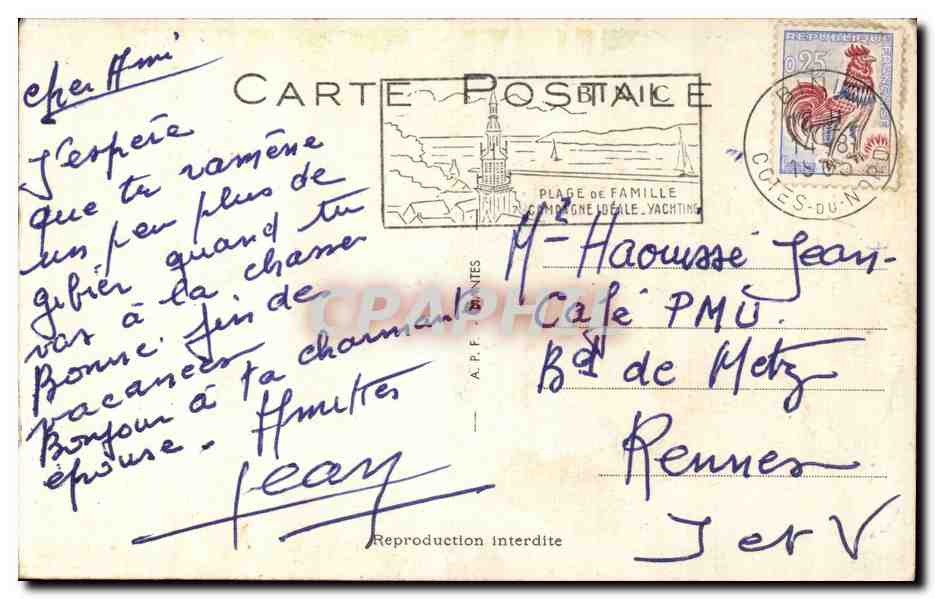 Cher Ami
CARTE POSTALE
J'espère
que tu ramène
un peu plus de
gibier quand tu
vas à la chasse
Bonne fin de
vacances
Bonjour à ta charmante
épouse. Amitiés
Jean
BINIC
PLAGE DE FAMILLE
CAMPAGNE IDÉALE _ YACHTING
REPUBLIQUE FRANÇAISE
0,25
BINIC
COTES-DU-NORD
A. P. F. NANTES
CPAPHIL
Mr Haoussé Jean-
Café PMU.
Bd de Metz
Rennes
I et V
Reproduction interdite